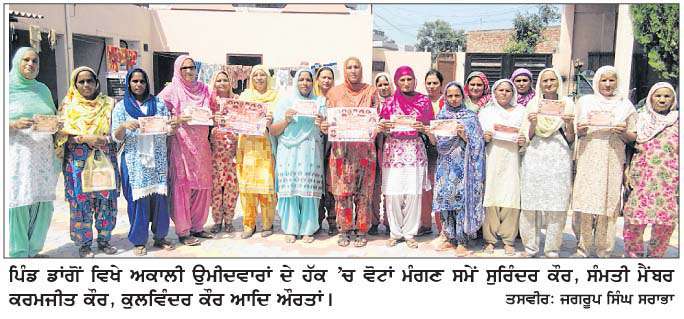 ਪਿੰਡ ਡਾਂਗੋਂ ਵਿਖੇ ਅਕਾਲੀ ਉਮੀਦਵਾਰਾਂ ਦੇ ਹੱਕ ’ਚ ਵੋਟਾਂ ਮੰਗਣ ਸਮੇਂ ਸੁਰਿੰਦਰ ਕੌਰ, ਸੰਮਤੀ ਮੈਂਬਰ
ਕਰਮਜੀਤ ਕੌਰ, ਕੁਲਵਿੰਦਰ ਕੌਰ ਆਦਿ ਔਰਤਾਂ।
ਤਸਵੀਰ: ਜਗਰੂਪ ਸਿੰਘ ਸਰਾਭਾ